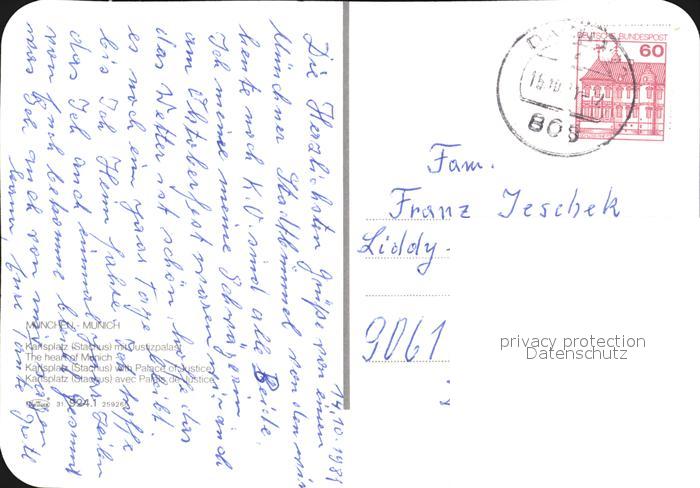 14.10.1981
Die Herzlichsten Grüße von einem
Münchner Stadtbummel von dem wir
heute noch K.O. sind alle Beide.
Ich meine meine Schwägerin
am Oktoberfest waren wir auch
das Wetter ist schön, hoffe das
es noch ein paar Tage bleibt
bis Ich Heim fahre. Ich hoffe
das Ich auch einmal paar Zeilen
von Euch bekomme bin gespannt
was Ich auch von
kann Eure Tante Gretl
MÜNCHEN - MUNICH
Karlsplatz (Stachus) mit Justizpalast
The heart of Munich
Karlsplatz (Stachus) with Palace of Justice
Karlsplatz (Stachus) avec Palais de Justice
924.1 25926
DEUTSCHE BUNDESPOST
60
Fam.
Franz Jeschek
Liddy.
9061
privacy protection
Datenschutz